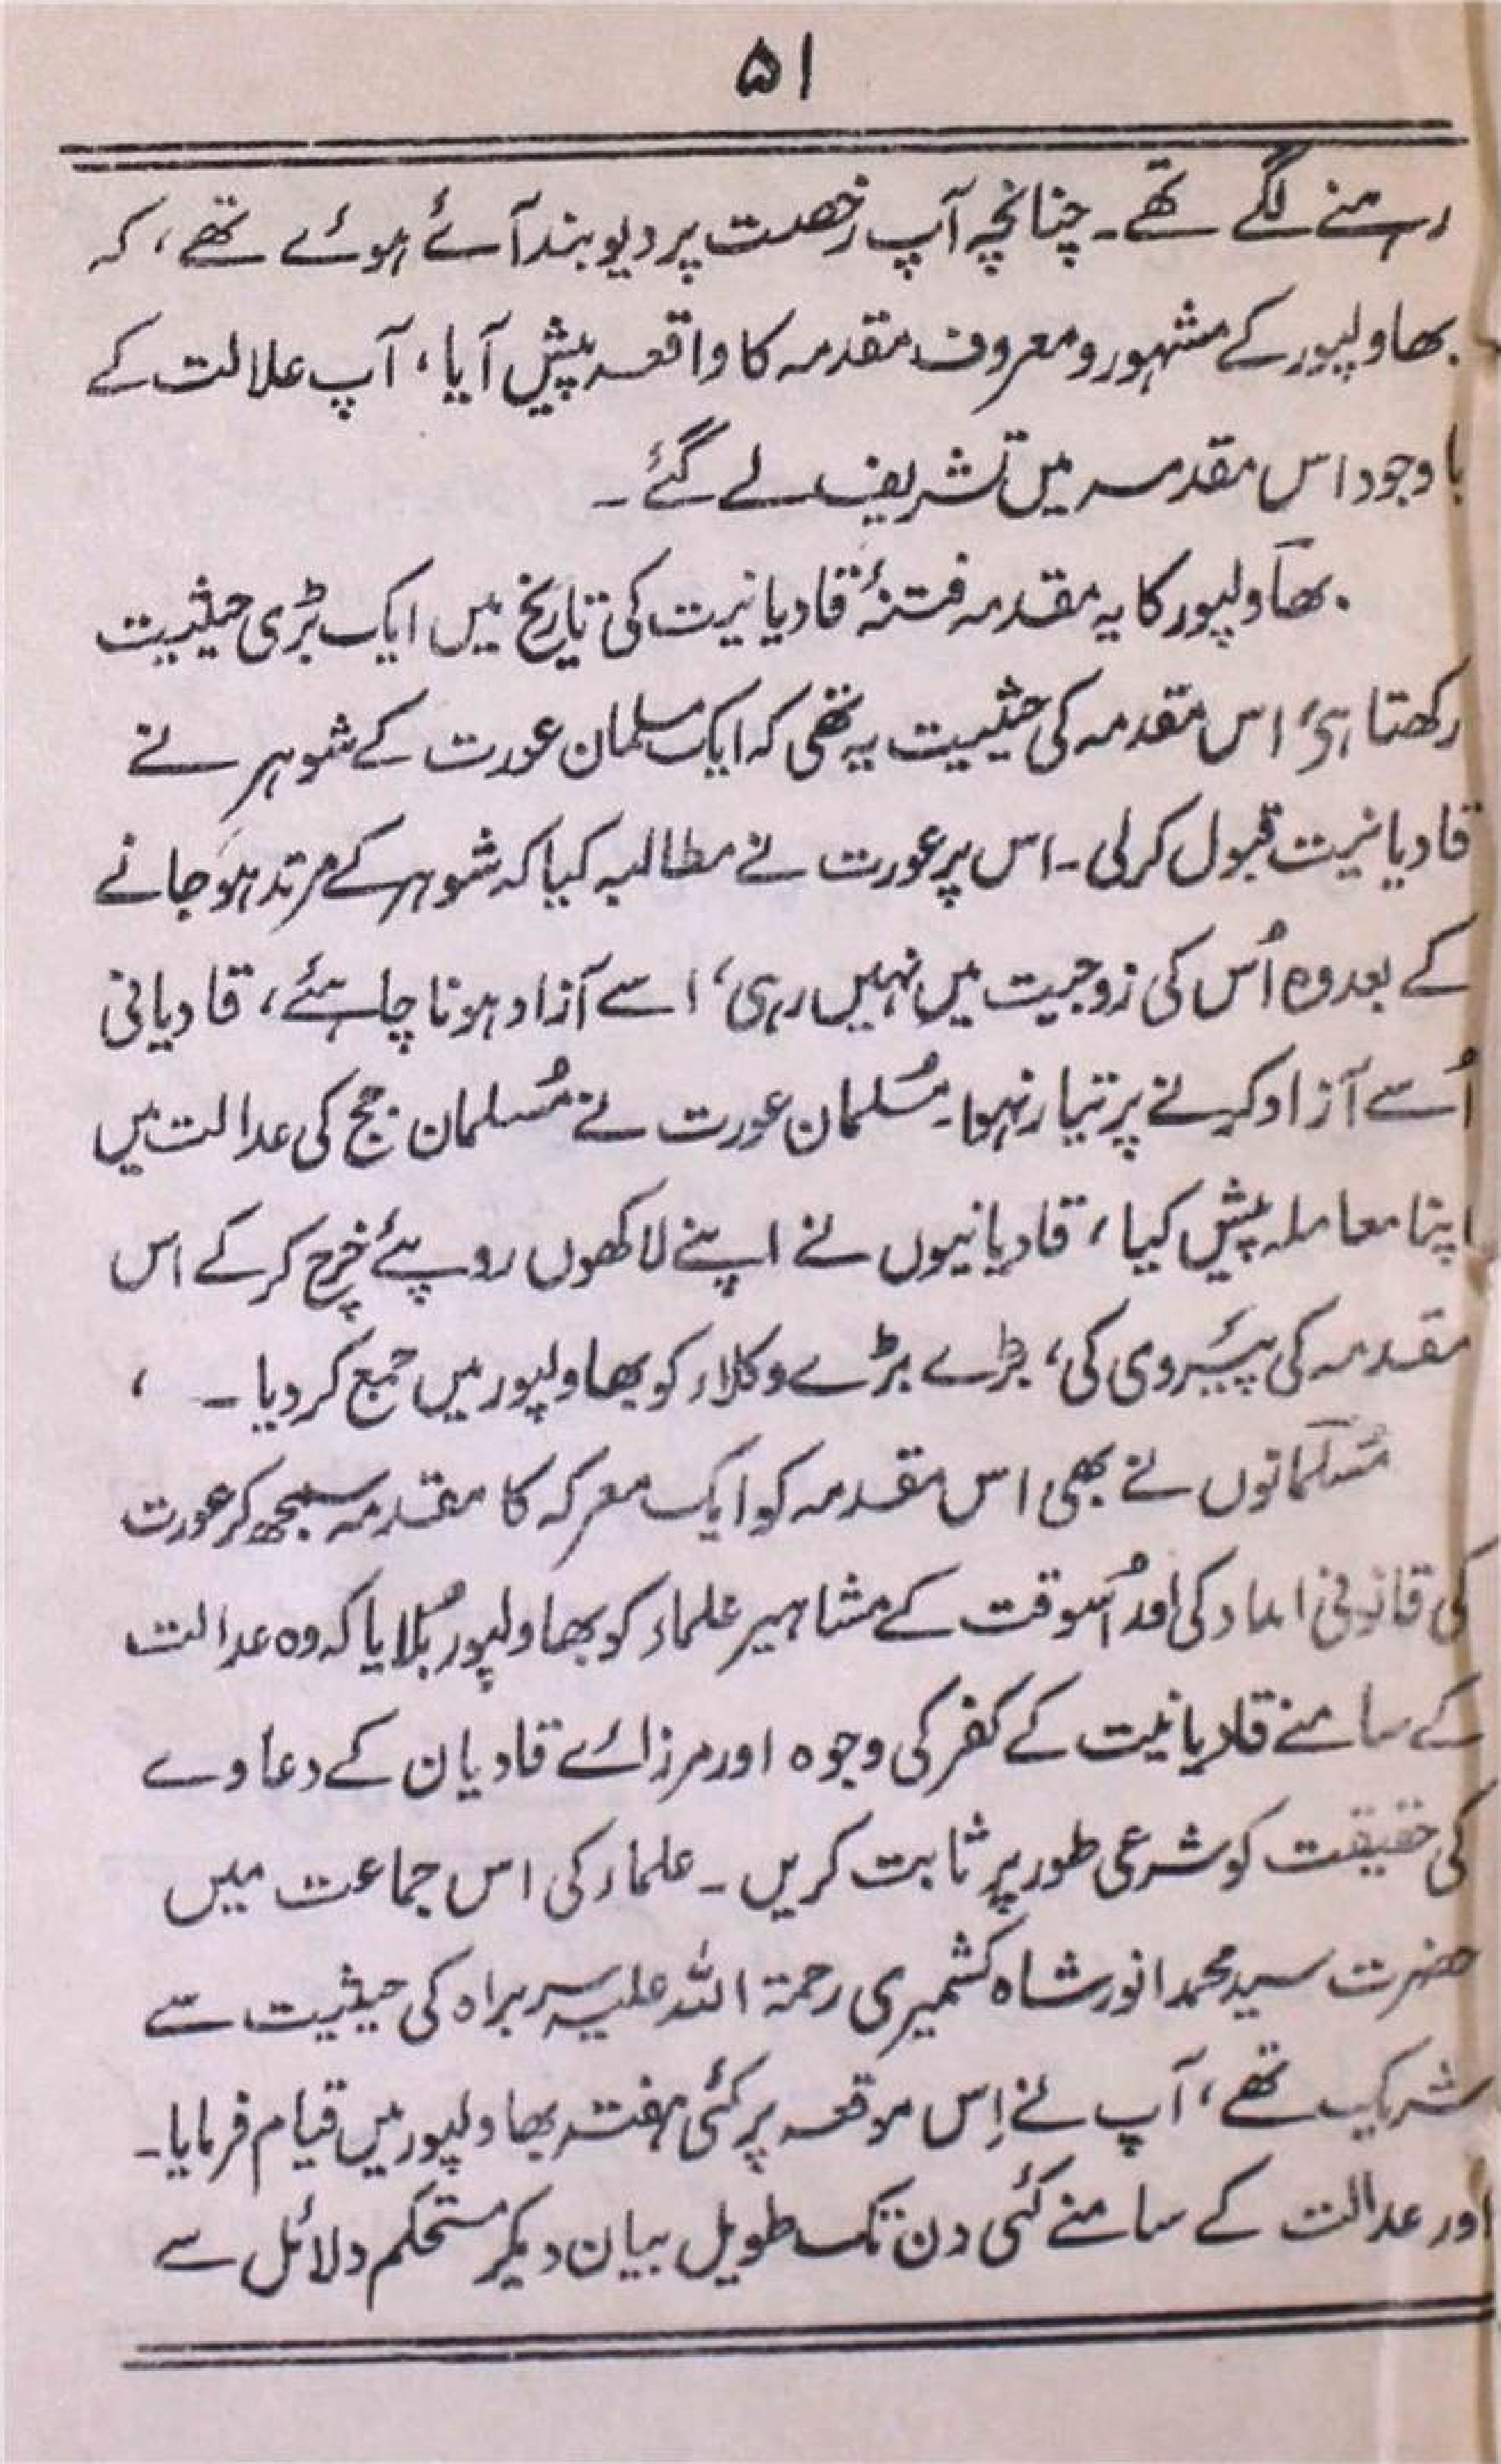 ۵۱
رہنے لگے تھے۔ چنانچہ آپ رخصت پر دیوبند آئے ہوئے تھے، کہ
بھاولپور کے مشہور و معروف مقدمہ کا واقعہ پیش آیا، آپ علالت کے
باوجود اس مقدمہ میں تشریف لے گئے۔
بھاولپور کا یہ مقدمہ فتنۂ قادیانیت کی تاریخ میں ایک بڑی حیثیت
رکھتا ہے، اس مقدمہ کی حیثیت یہ تھی کہ ایک مسلمان عورت کے شوہر نے
قادیانیت قبول کرلی۔ اس پر عورت نے مطالبہ کیا کہ شوہر کے مرتد ہو جانے
کے بعد وہ اُس کی زوجیت میں نہیں رہی، اسے آزاد ہونا چاہئے، قادیانی
اُسے آزاد کرنے پر تیار نہوا۔ مُسلمان عورت نے مُسلمان جج کی عدالت میں
اپنا معاملہ پیش کیا، قادیانیوں نے اپنے لاکھوں روپئے خرچ کرکے اس
مقدمہ کی پیَروی کی، بڑے بڑے وکلاء کو بھاولپور میں جمع کر دیا۔ ،
مُسلمانوں نے بھی اس مقدمہ کو ایک معرکہ کا مقدمہ سمجھ کر عورت
کی قانونی امداد کی اور اُسوقت کے مشاہیر علماء کو بھاولپور بُلایا کہ وہ عدالت
کے سامنے قادیانیت کے کفر کی وجوہ اور مرزائے قادیان کے دعاوے
کی حقیقت کو شرعی طور پر ثابت کریں۔ علماء کی اس جماعت میں
حضرت سید محمد انور شاہ کشمیری رحمۃ اللہ علیہ سربراہ کی حیثیت سے
شریک تھے، آپ نے اِس موقعہ پر کئی ہفتہ بھاولپور میں قیام فرمایا۔
اور عدالت کے سامنے کئی دن تک طویل بیان دیکر مستحکم دلائل سے